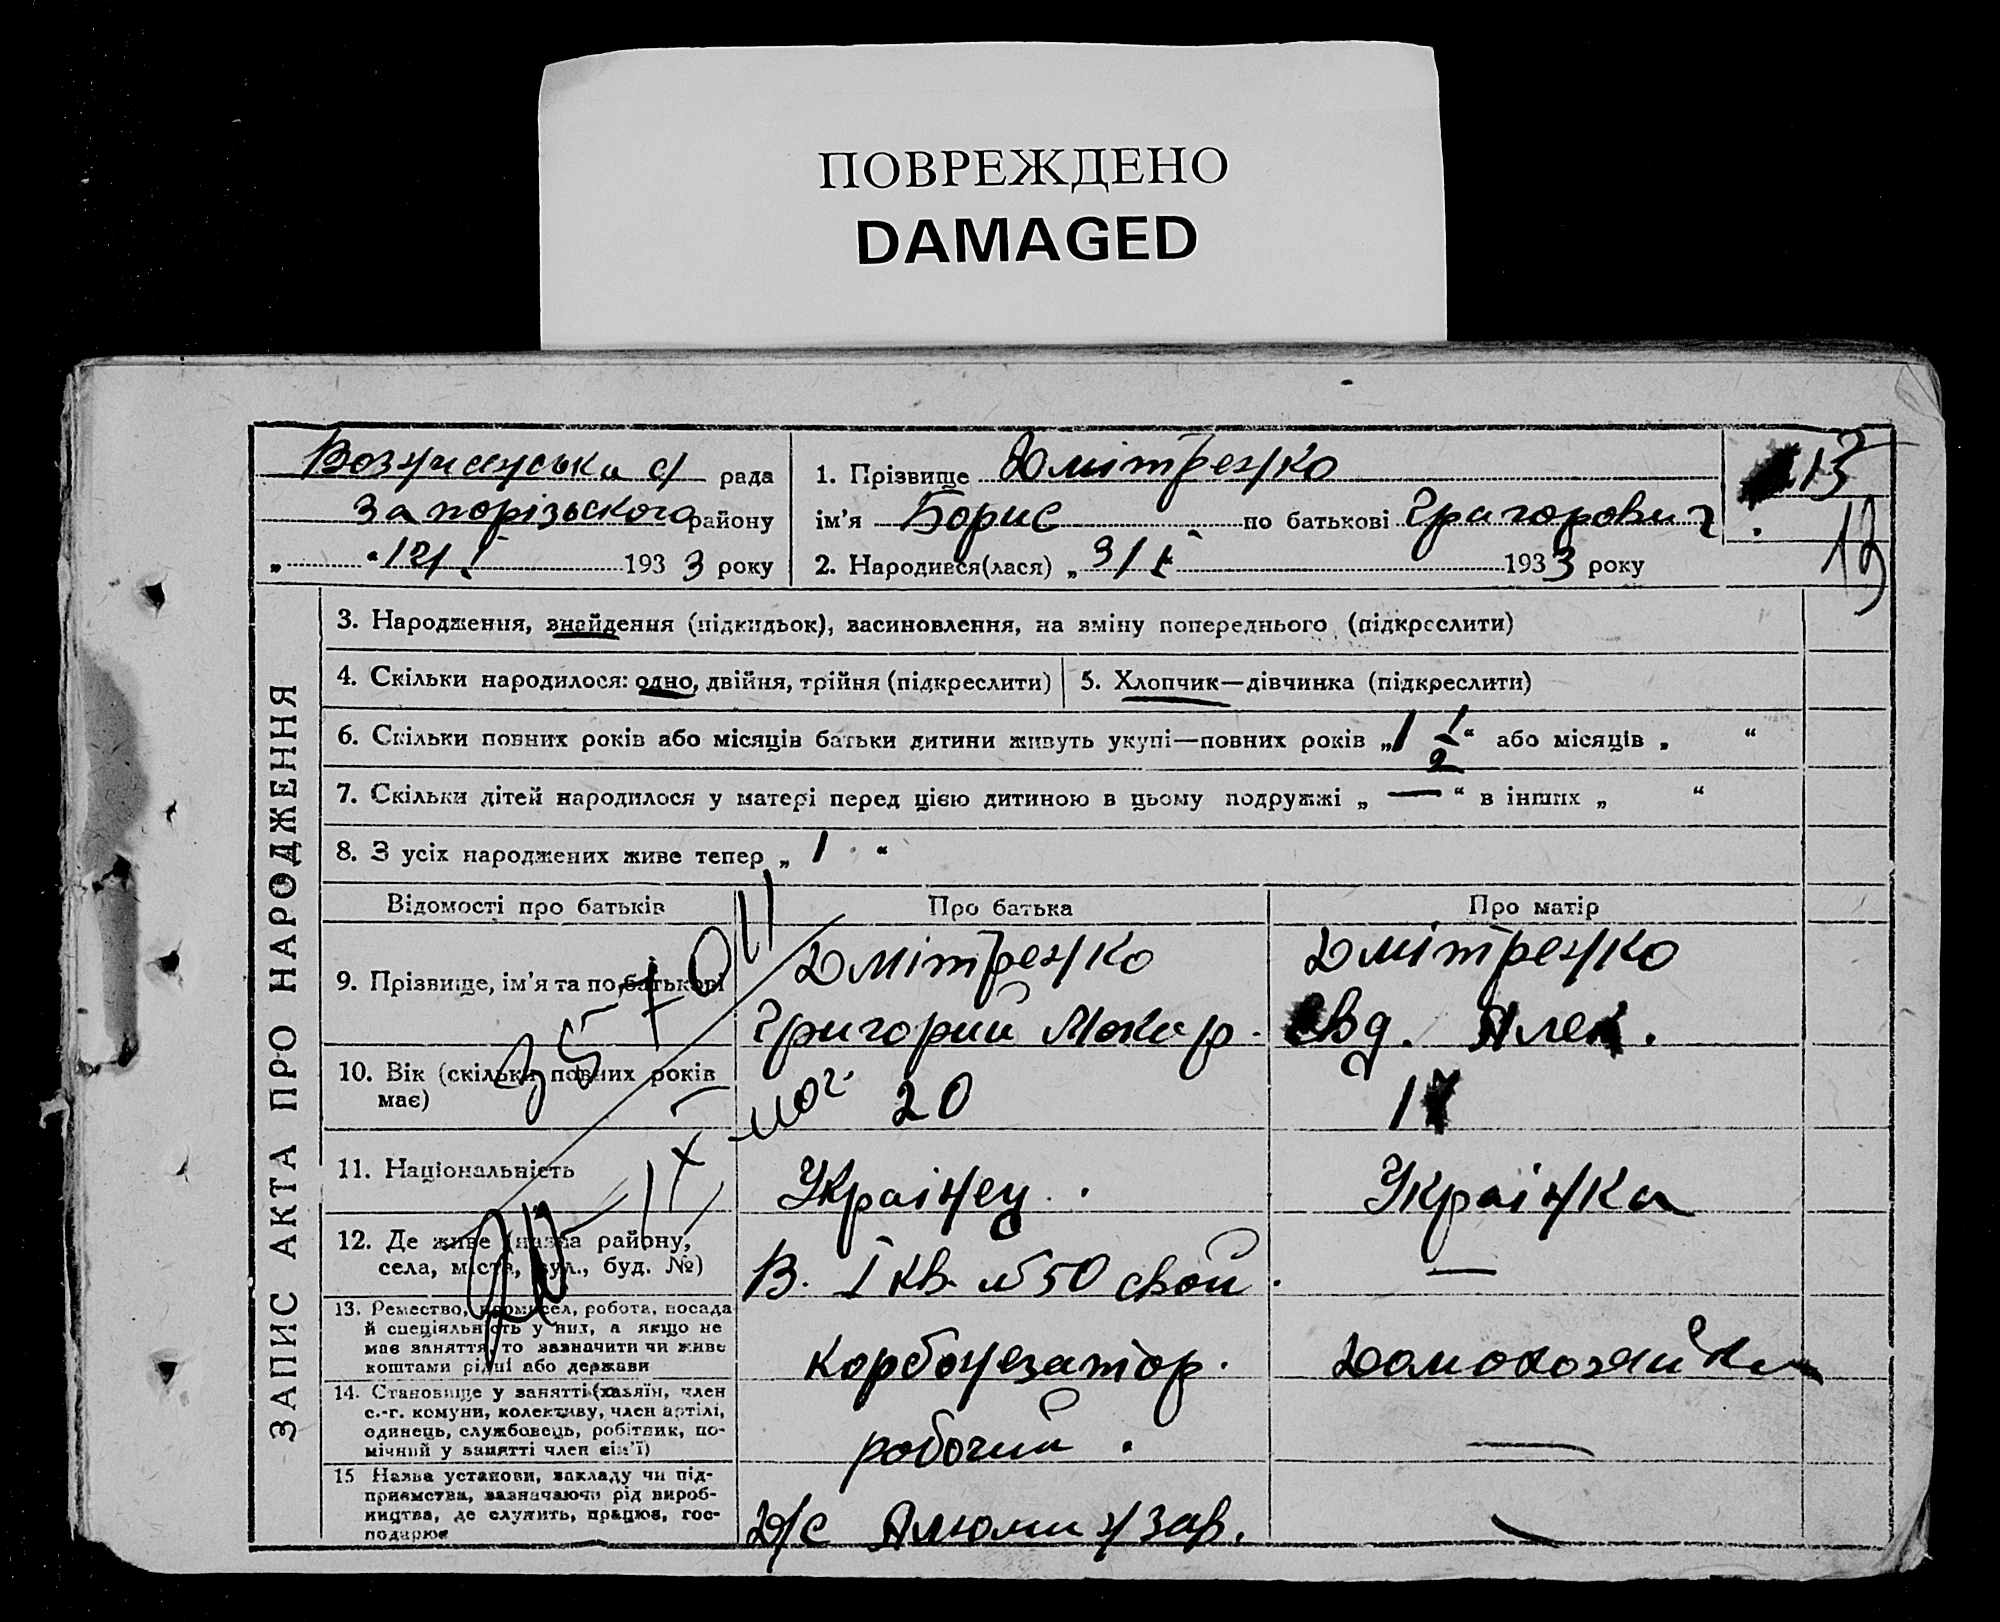 ПОВРЕЖДЕНО
DAMAGED
Вознисенська с/ рада
Запорізського району
„ 12/I 1933 року
1. Прізвище Дмітренко
ім'я Борис по батькові Григорович
2. Народився(лася) „ 3/I 1933 року
13
13
ЗАПИС АКТА ПРО НАРОДЖЕННЯ
3. Народження, знайдення (підкидьок), засиновлення, на зміну попереднього (підкреслити)
4. Скільки народилося: одно, двійня, трійня (підкреслити)
5. Хлопчик—дівчинка (підкреслити)
6. Скільки повних років або місяців батьки дитини живуть укупі—повних років „1 1/2“ або місяців „ “
7. Скільки дітей народилося у матері перед цією дитиною в цьому подружжі „ — “ в інших „ “
8. З усіх народжених живе тепер „ 1 “
Відомості про батьків
Про батька
Про матір
9. Прізвище, ім'я та по батькові
Дмітренко
Григорий Макар.
Дмітренко
Евд. Алек.
10. Вік (скільки повних років
має)
20
11. Національність
Українец.
Українка
12. Де живе (назва району,
села, міста, вул., буд. №)
В. I кв. №50 свой.
—
13. Ремество, промисел, робота, посада
й спеціяльність у них, а якщо не
має заняття, то зазначити чи живе
коштами рідні або держави
корбонезатор.
домохозяйка
14. Становище у занятті (хазяїн, член
с.-г. комуни, колективу, член артілі,
одинець, службовець, робітник, по-
мічний у занятті член сім'ї)
робочий.
—
15 Назва установи, закладу чи під-
приємства, зазначаючи рід вироб-
ництва, де служить, працює, гос-
подарює
Д/с Алюмин зав.
—